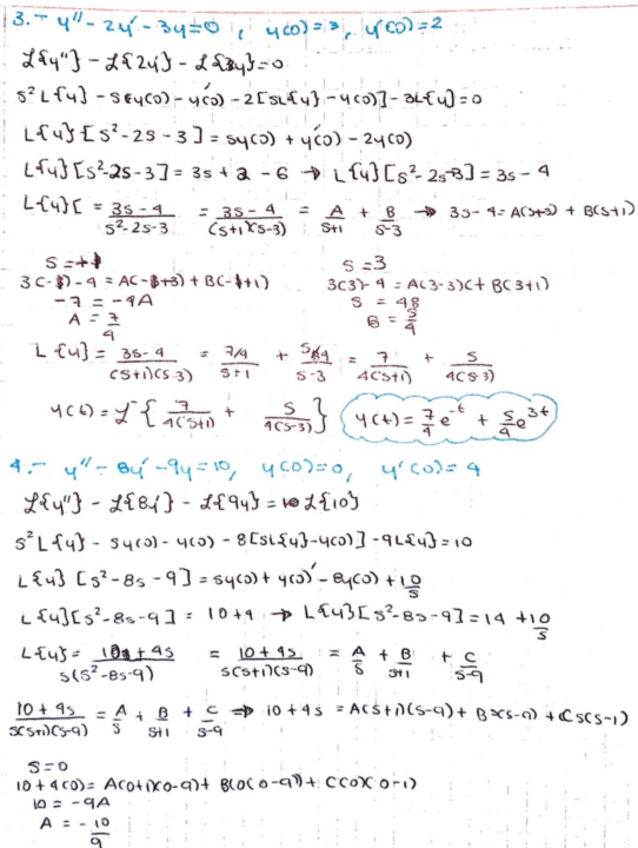 3.- y'' - 2y' - 3y = 0 , y(0) = 3, y'(0) = 2
L{y''} - L{2y'} - L{3y} = 0
s²L{y} - sy(0) - y'(0) - 2[sL{y} - y(0)] - 3L{y} = 0
L{y}[s² - 2s - 3] = sy(0) + y'(0) - 2y(0)
L{y}[s² - 2s - 3] = 3s + 2 - 6 → L{y}[s² - 2s - 3] = 3s - 4
L{y}[ = 3s - 4 / s² - 2s - 3 = 3s - 4 / (s+1)(s-3) = A / s+1 + B / s-3 → 3s - 4 = A(s+3) + B(s+1)
s = -1 s = 3
3(-1) - 4 = A(-1+3) + B(-1+1) 3(3) - 4 = A(3-3) + B(3+1)
-7 = -4A 5 = 4B
A = 7/4 B = 5/4
L{y} = 3s-4 / (s+1)(s-3) = 7/4 / s+1 + 5/4 / s-3 = 7 / 4(s+1) + 5 / 4(s-3)
y(t) = L⁻{ 7 / 4(s+1) + 5 / 4(s-3) } y(t) = 7/4 e^-t + 5/4 e^3t
4.- y'' - 8y' - 9y = 10, y(0) = 0, y'(0) = 4
L{y''} - L{8y'} - L{9y} = L{10}
s²L{y} - sy(0) - y(0) - 8[sL{y} - y(0)] - 9L{y} = 10
L{y} [s² - 8s - 9] = sy(0) + y(0)' - 8y(0) + 10/s
L{y}[s² - 8s - 9] = 10 + 4 → L{y}[s² - 8s - 9] = 14 + 10/s
L{y} = 10 + 4s / s(s² - 8s - 9) = 10 + 4s / s(s+1)(s-9) = A/s + B / s+1 + C / s-9
10 + 4s / s(s+1)(s-9) = A/s + B / s+1 + C / s-9 ⇒ 10 + 4s = A(s+1)(s-9) + Bs(s-9) + Cs(s-1)
s = 0
10 + 4(0) = A(0+1)(0-9) + B(0(0-9)) + C(0)(0-1)
10 = -9A
A = - 10/9